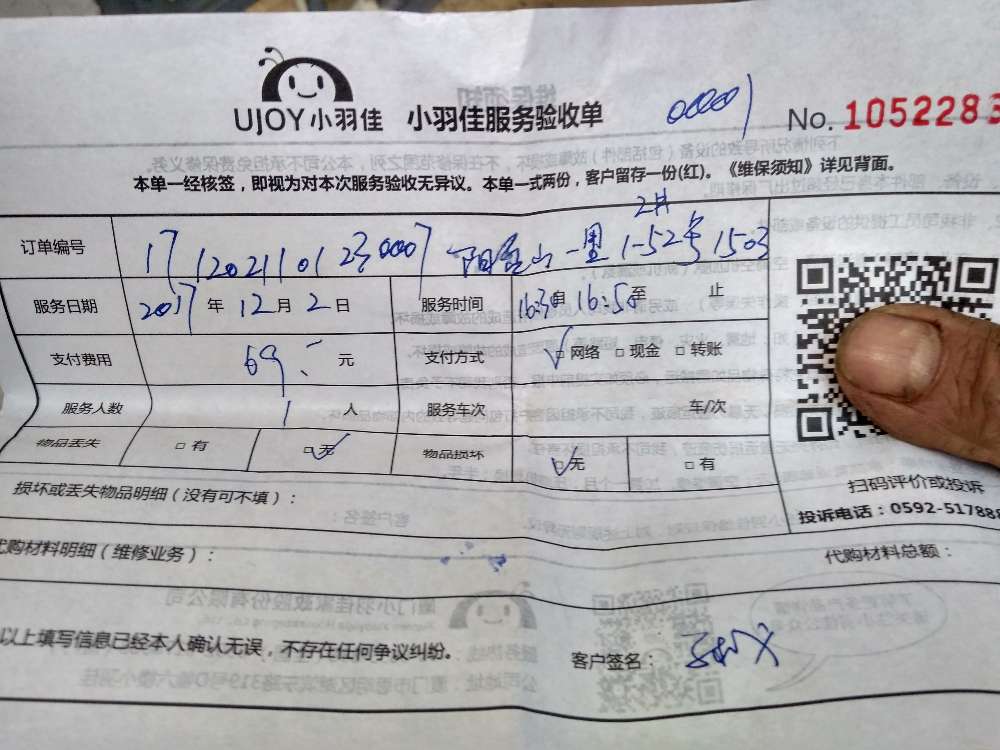 UJOY小羽佳 小羽佳服务验收单 00001 No. 1052283
本单一经核签，即视为对本次服务验收无异议。本单一式两份，客户留存一份(红)。《维保须知》详见背面。
订单编号 1712021101230007 一里 1-52号 1503
服务日期 2017 年 12 月 2 日 服务时间 16:30 自 16:50 至 止
支付费用 69 元 支付方式 ☑网络 □现金 □转账
服务人数 1 人 服务车次 车/次
物品丢失 □有 ☑无 物品损坏 ☑无 □有
损坏或丢失物品明细（没有可不填）：
扫码评价或投诉
投诉电话：0592-517888
代购材料明细（维修业务）： 代购材料总额：
以上填写信息已经本人确认无误，不存在任何争议纠纷。 客户签名：